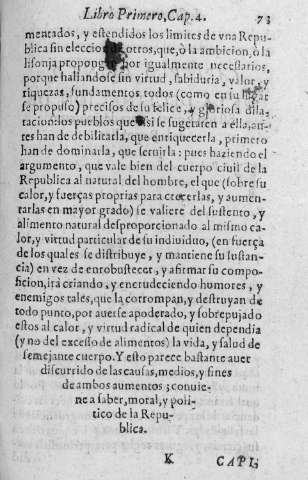 Libro Primero, Cap. 4. 73
mentados, y estendidos los limites de vna Repu-
blica sin eleccion otros, que, ò la ambicion, ò la
lisonja proponga por igualmente necessarios,
porque hallandose sin virtud, sabiduria, valor, y
riquezas, fundamentos todos (como en su lugar
se propuso) precisos de su felice, y gloriosa dila-
tacion: los pueblos que assi se sugetaren a ella, an-
tes han de debilitarla, que enriquecerla, primero
han de dominarla, que seruirla: pues haziendo el
argumento, que vale bien del cuerpo ciuil de la
Republica al natural del hombre, el que (sobre su
calor, y fuerças proprias para cozerlas, y aumen-
tarlas en mayor grado) se valiere del sustento, y
alimento natural desproporcionado al mismo ca-
lor, y virtud particular de su indiuiduo, (en fuerça
de los quales se distribuye, y mantiene su sustan-
cia) en vez de enrobustecer, y afirmar su compo-
sicion, irà criando, y encrudeciendo humores, y
enemigos tales, que la corrompan, y destruyan de
todo punto, por auerse apoderado, y sobrepujado
estos al calor, y virtud radical de quien dependia
(y no del excesso de alimentos) la vida, y salud de
semejante cuerpo. Y esto parece bastante auer
discurrido de las causas, medios, y fines
de ambos aumentos; conuie-
ne a saber, moral, y poli-
tico de la Repu-
blica.
K CAPI;